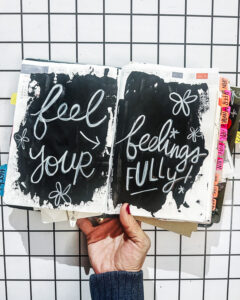 feel
your
feelings
FULLY!